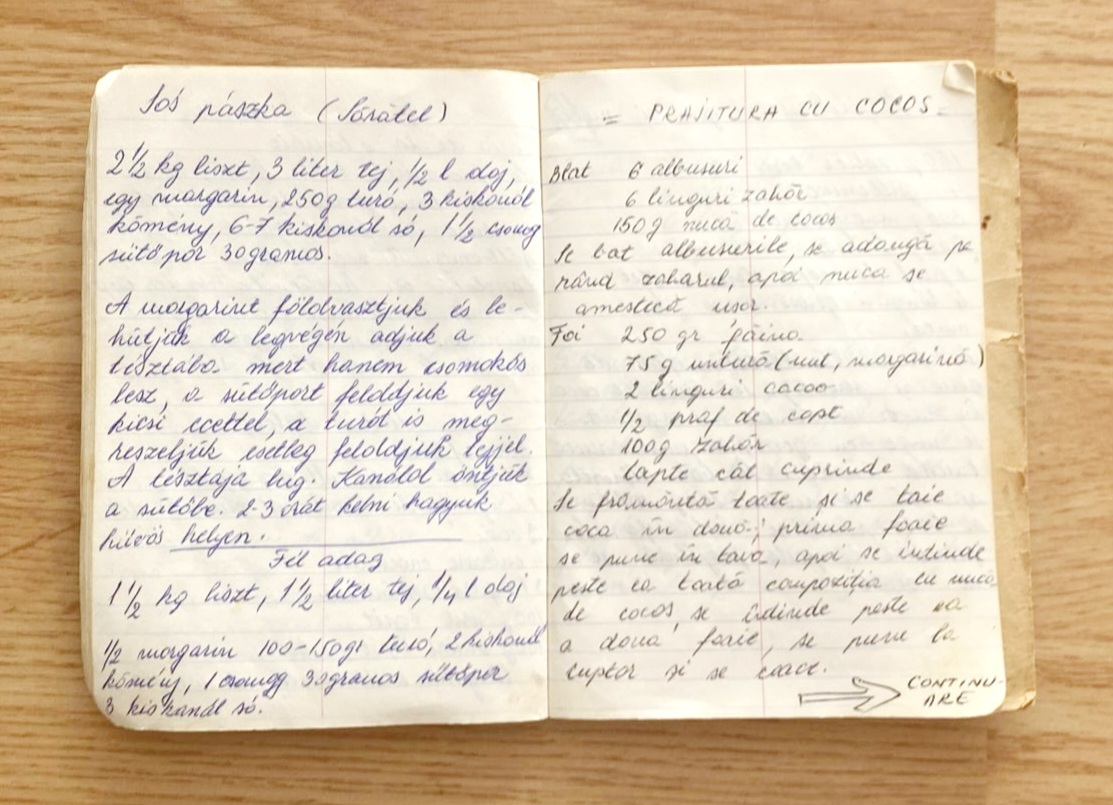 Sós pászka (Sósátel)
2 1/2 kg liszt, 3 liter tej, 1/2 l olaj,
egy margarin, 250g turó, 3 kiskanál
kömény, 6-7 kiskanál só, 1 1/2 csomag
sütőpor 30gramos.
A margarint földvasztjuk és le-
hütjük a legvégén adjuk a
tésztába mert hanem csomokós
lesz, a sütőport felddjuk egy
kicsi ecettel, a turót is meg-
reszeljük esetleg feloldjuk tejjel.
A tésztája hig. Kanálal öntjük
a sütőbe. 2-3 órát kelni hagyjuk
hüvös helyen.
Fél adag
1 1/2 kg liszt, 1 1/2 liter tej, 1/4 l olaj
1/2 margarin 100-150gr turó, 2 kiskanál
kömény, 1 csomagg 30gramos sütőpor
3 kiskanál só.
= PRAJITURA CU COCOS =
Blat 6 albusuri
6 linguri zahăr
150g nucă de cocos
Se bat albusurile, se adaugă pe
rând zaharul, apoi nuca se
amestecă usor.
Foi 250 gr făina
75g untură (unt, margarină)
2 linguri cacao
1/2 praf de copt
100g zahăr
lapte cât cuprinde
Se frământă toate si se taie
coca în două; prima foaie
se pune în tava, apoi se intinde
peste ea toată compoziția cu nucă
de cocos, se întinde peste ea
a doua foaie, se pune la
cuptor si se coace.
CONTINU-
ARE